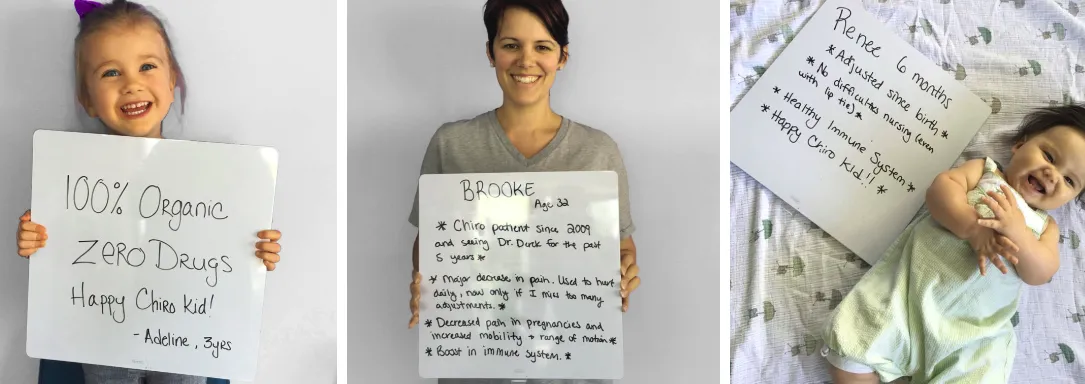 100% Organic
ZERO DRUGS
Happy Chiro Kid!
- Adeline, 3yrs
BROOKE
Age 32
* Chiro patient since 2009
and seeing Dr. Durk for the past
5 years *
* Major decrease in pain. Used to hurt
daily, now only if I miss too many
adjustments. *
* Decreased pain in pregnancies and
increased mobility + range of motion *
* Boost in immune system. *
Renee 6 months
* Adjusted since birth *
* No difficulties nursing (even
with lip tie) *
* Healthy Immune System *
* Happy Chiro Kid!! *